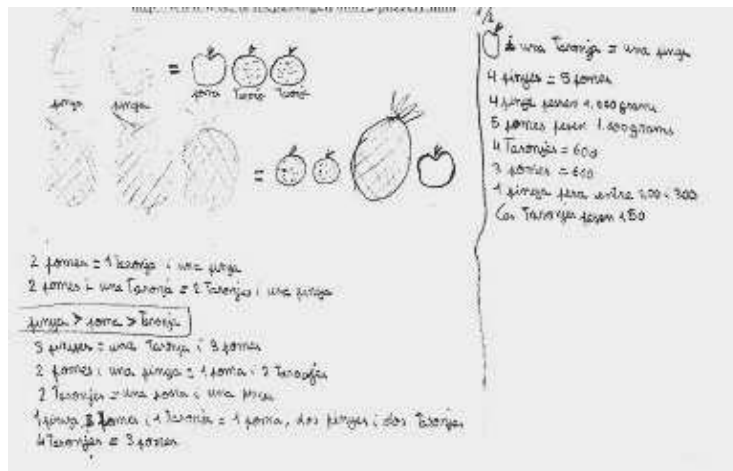 poma Taronja Taronja
pinya pinya
2 pomes = 1 Taronja i una pinya
2 pomes i una Taronja = 2 Taronjes i una pinya
pinya > poma > Taronja
3 pinyes = una Taronja i 3 pomes
2 pomes i una pinya = 1 poma i 2 Taronjes
2 Taronjes = una poma i una
pomes i 1 Taronja = 1 poma, dos pinyes i dos Taronjes
4 Taronjes = 3 pomes
1/2
i una Taronja = una pinya
4 pinyes = 5 pomes
4 pinyes pesen 1.000 grams
5 pomes pesen 1.000 grams
4 Taronjes = 600
3 pomes = 600
1 pinya pesa entre 200 i 300
Les Taronjes pesen 150